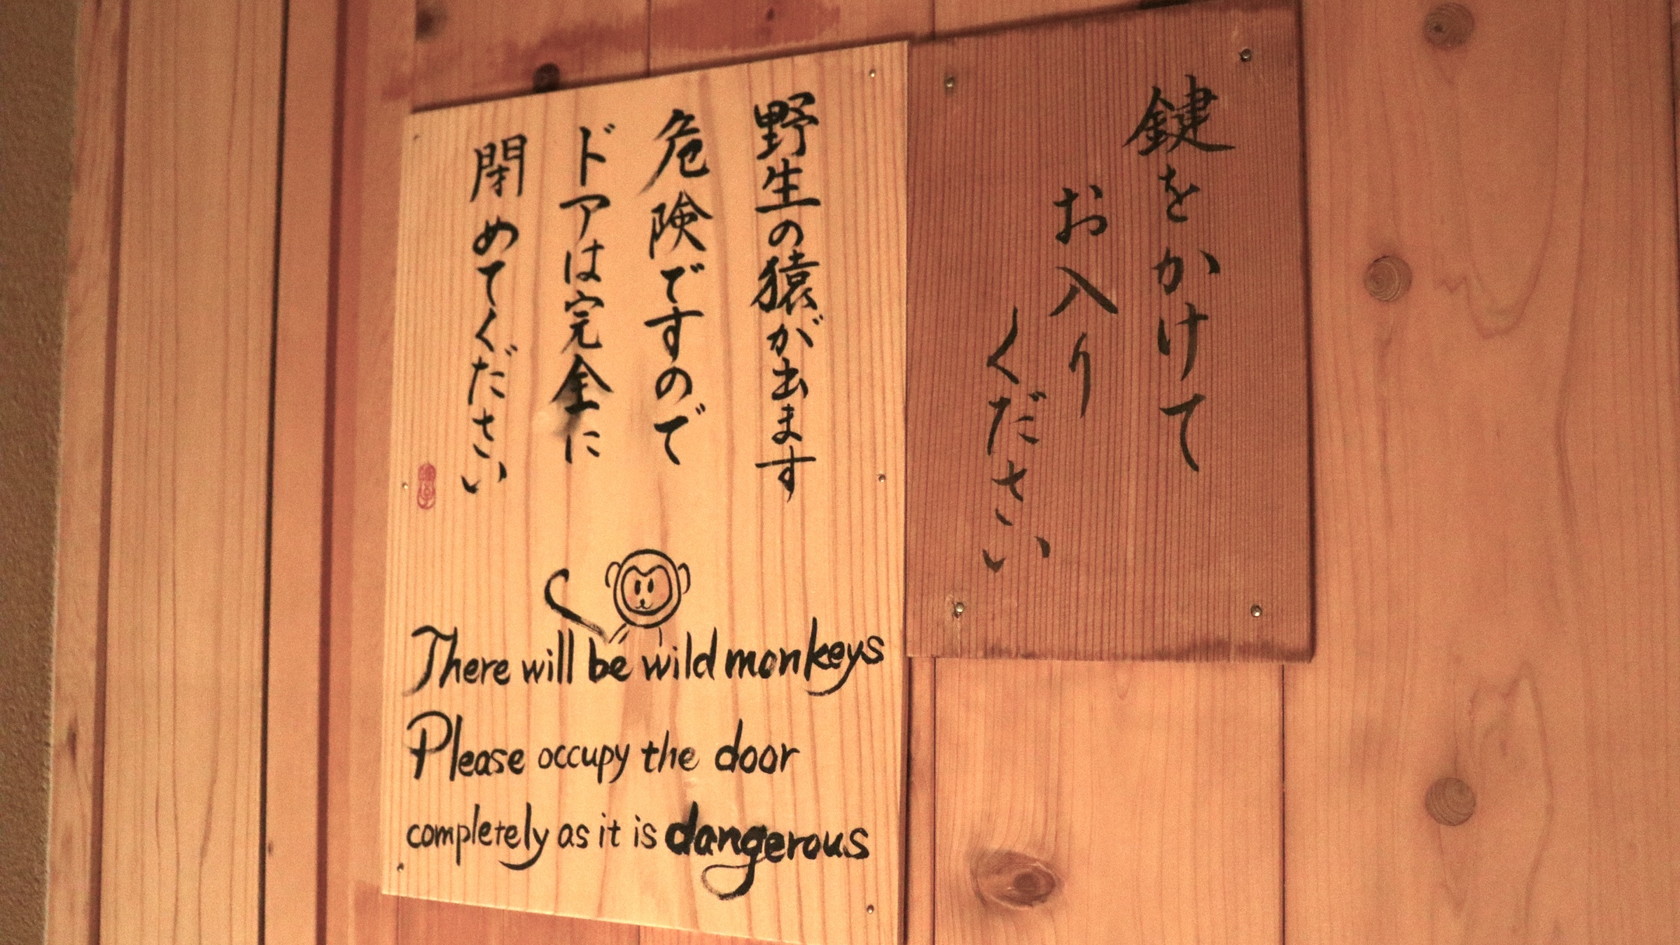 鍵をかけて
お入り
ください
野生の猿が出ます
危険ですので
ドアは完全に
閉めてください
There will be wild monkeys
Please occupy the door
completely as it is dangerous